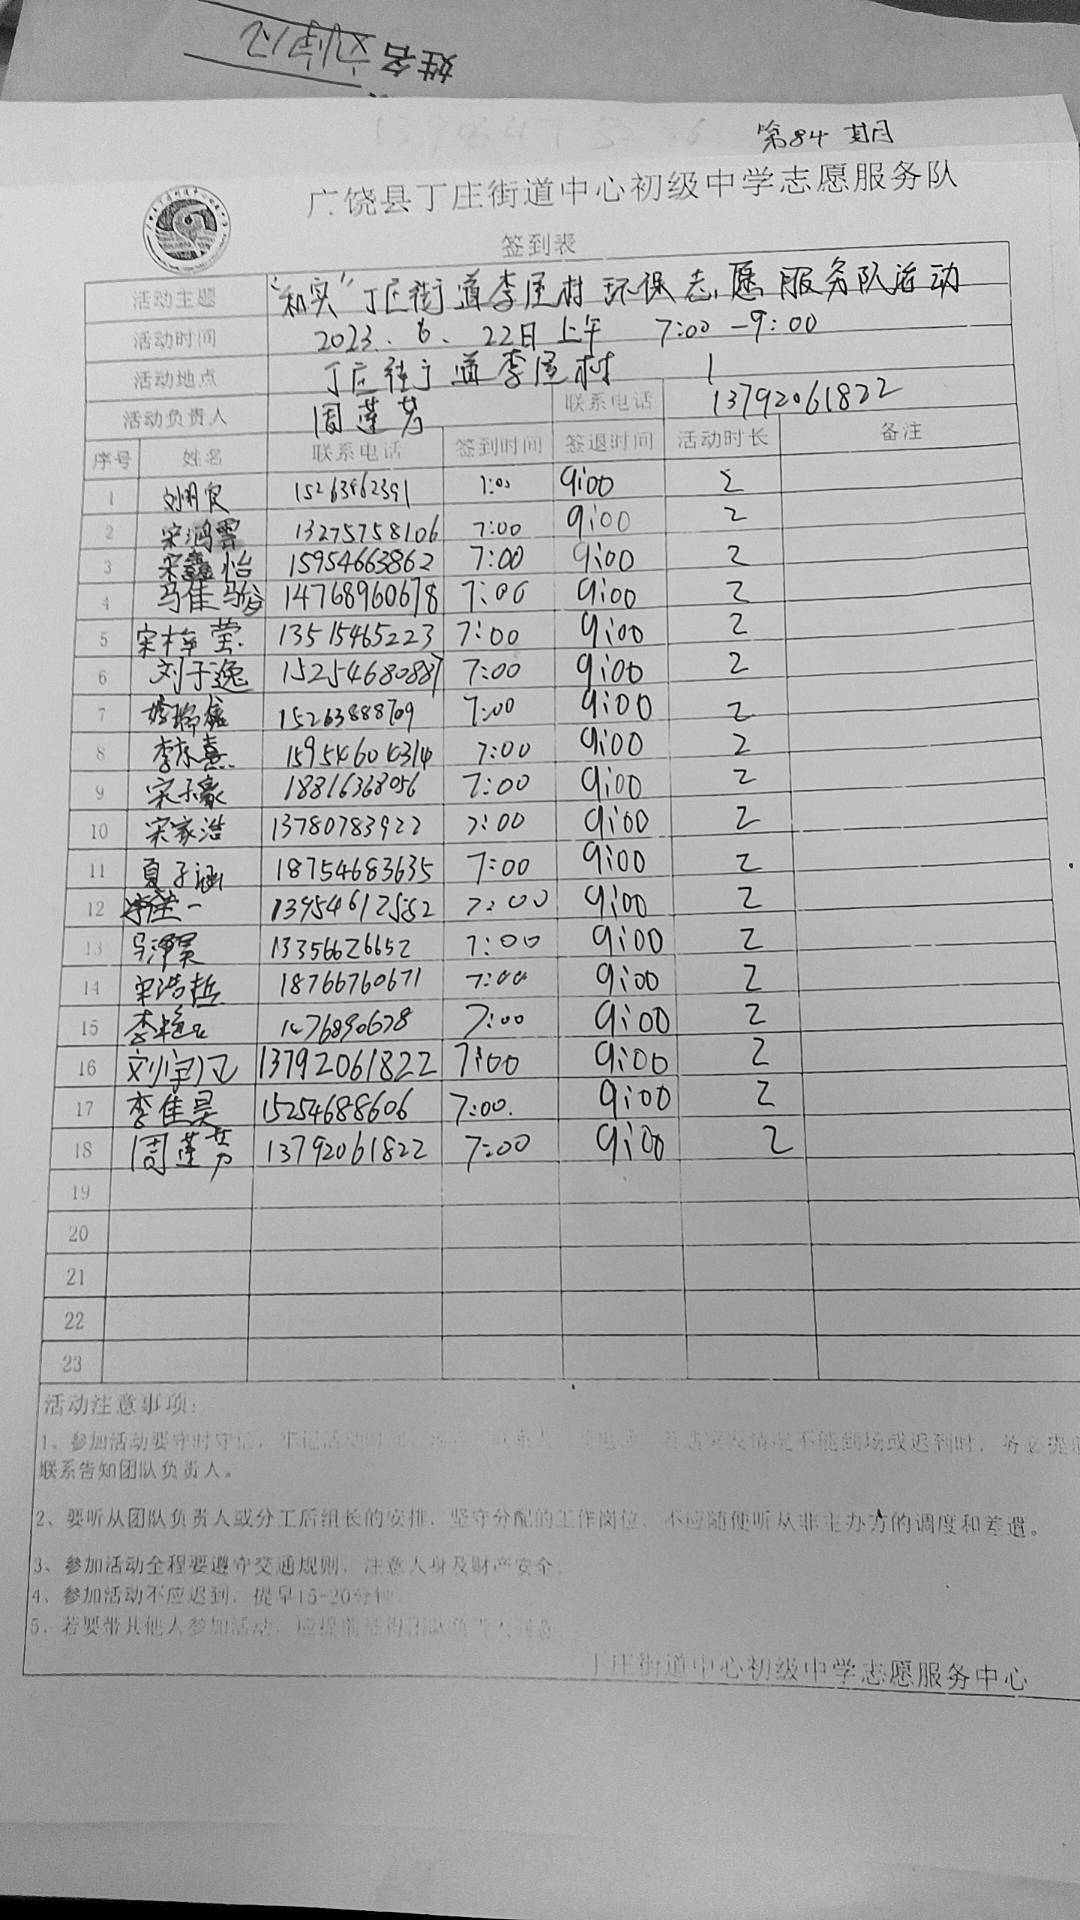 姓名
第84期
广饶县丁庄街道中心初级中学志愿服务队
签到表
活动主题 “和实”丁庄街道李屋村环保志愿服务队活动
活动时间 2023.6.22日上午 7:00-9:00
活动地点 丁庄街道李屋村
活动负责人 周莲芳 联系电话 13792061822
序号 姓名 联系电话 签到时间 签退时间 活动时长 备注
1 15263862391 7:00 9:00 2
2 宋鸿霄 13275758106 7:00 9:00 2
3 宋鑫怡 15954663862 7:00 9:00 2
4 马佳骏 14768960678 7:00 9:00 2
5 宋梓莹 13515465223 7:00 9:00 2
6 刘于逸 15254680887 7:00 9:00 2
7 15263888709 7:00 9:00 2
8 李东熹 7:00 9:00 2
9 宋子豪 18816368056 7:00 9:00 2
10 宋家浩 13780783922 7:00 9:00 2
11 夏子涵 18754683635 7:00 9:00 2
12 13954612552 7:00 9:00 2
13 马泽昊 13356626652 7:00 9:00 2
14 宋浩哲 18766760671 7:00 9:00 2
15 7:00 9:00 2
16 13792061822 7:00 9:00 2
17 李佳昊 15254688606 7:00 9:00 2
18 周莲芳 13792061822 7:00 9:00 2
19
20
21
22
23
活动注意事项:
1、参加活动要守时守信，牢记活动时间、 不能到场或迟到时，务必提前
联系告知团队负责人。
2、要听从团队负责人或分工后组长的安排，坚守分配的工作岗位，不应随便听从非主办方的调度和差遣。
3、参加活动全程要遵守交通规则，注意人身及财产安全。
4、参加活动不应迟到，提早15-20分钟
5、若要带其他人参加活动，应提前
丁庄街道中心初级中学志愿服务中心